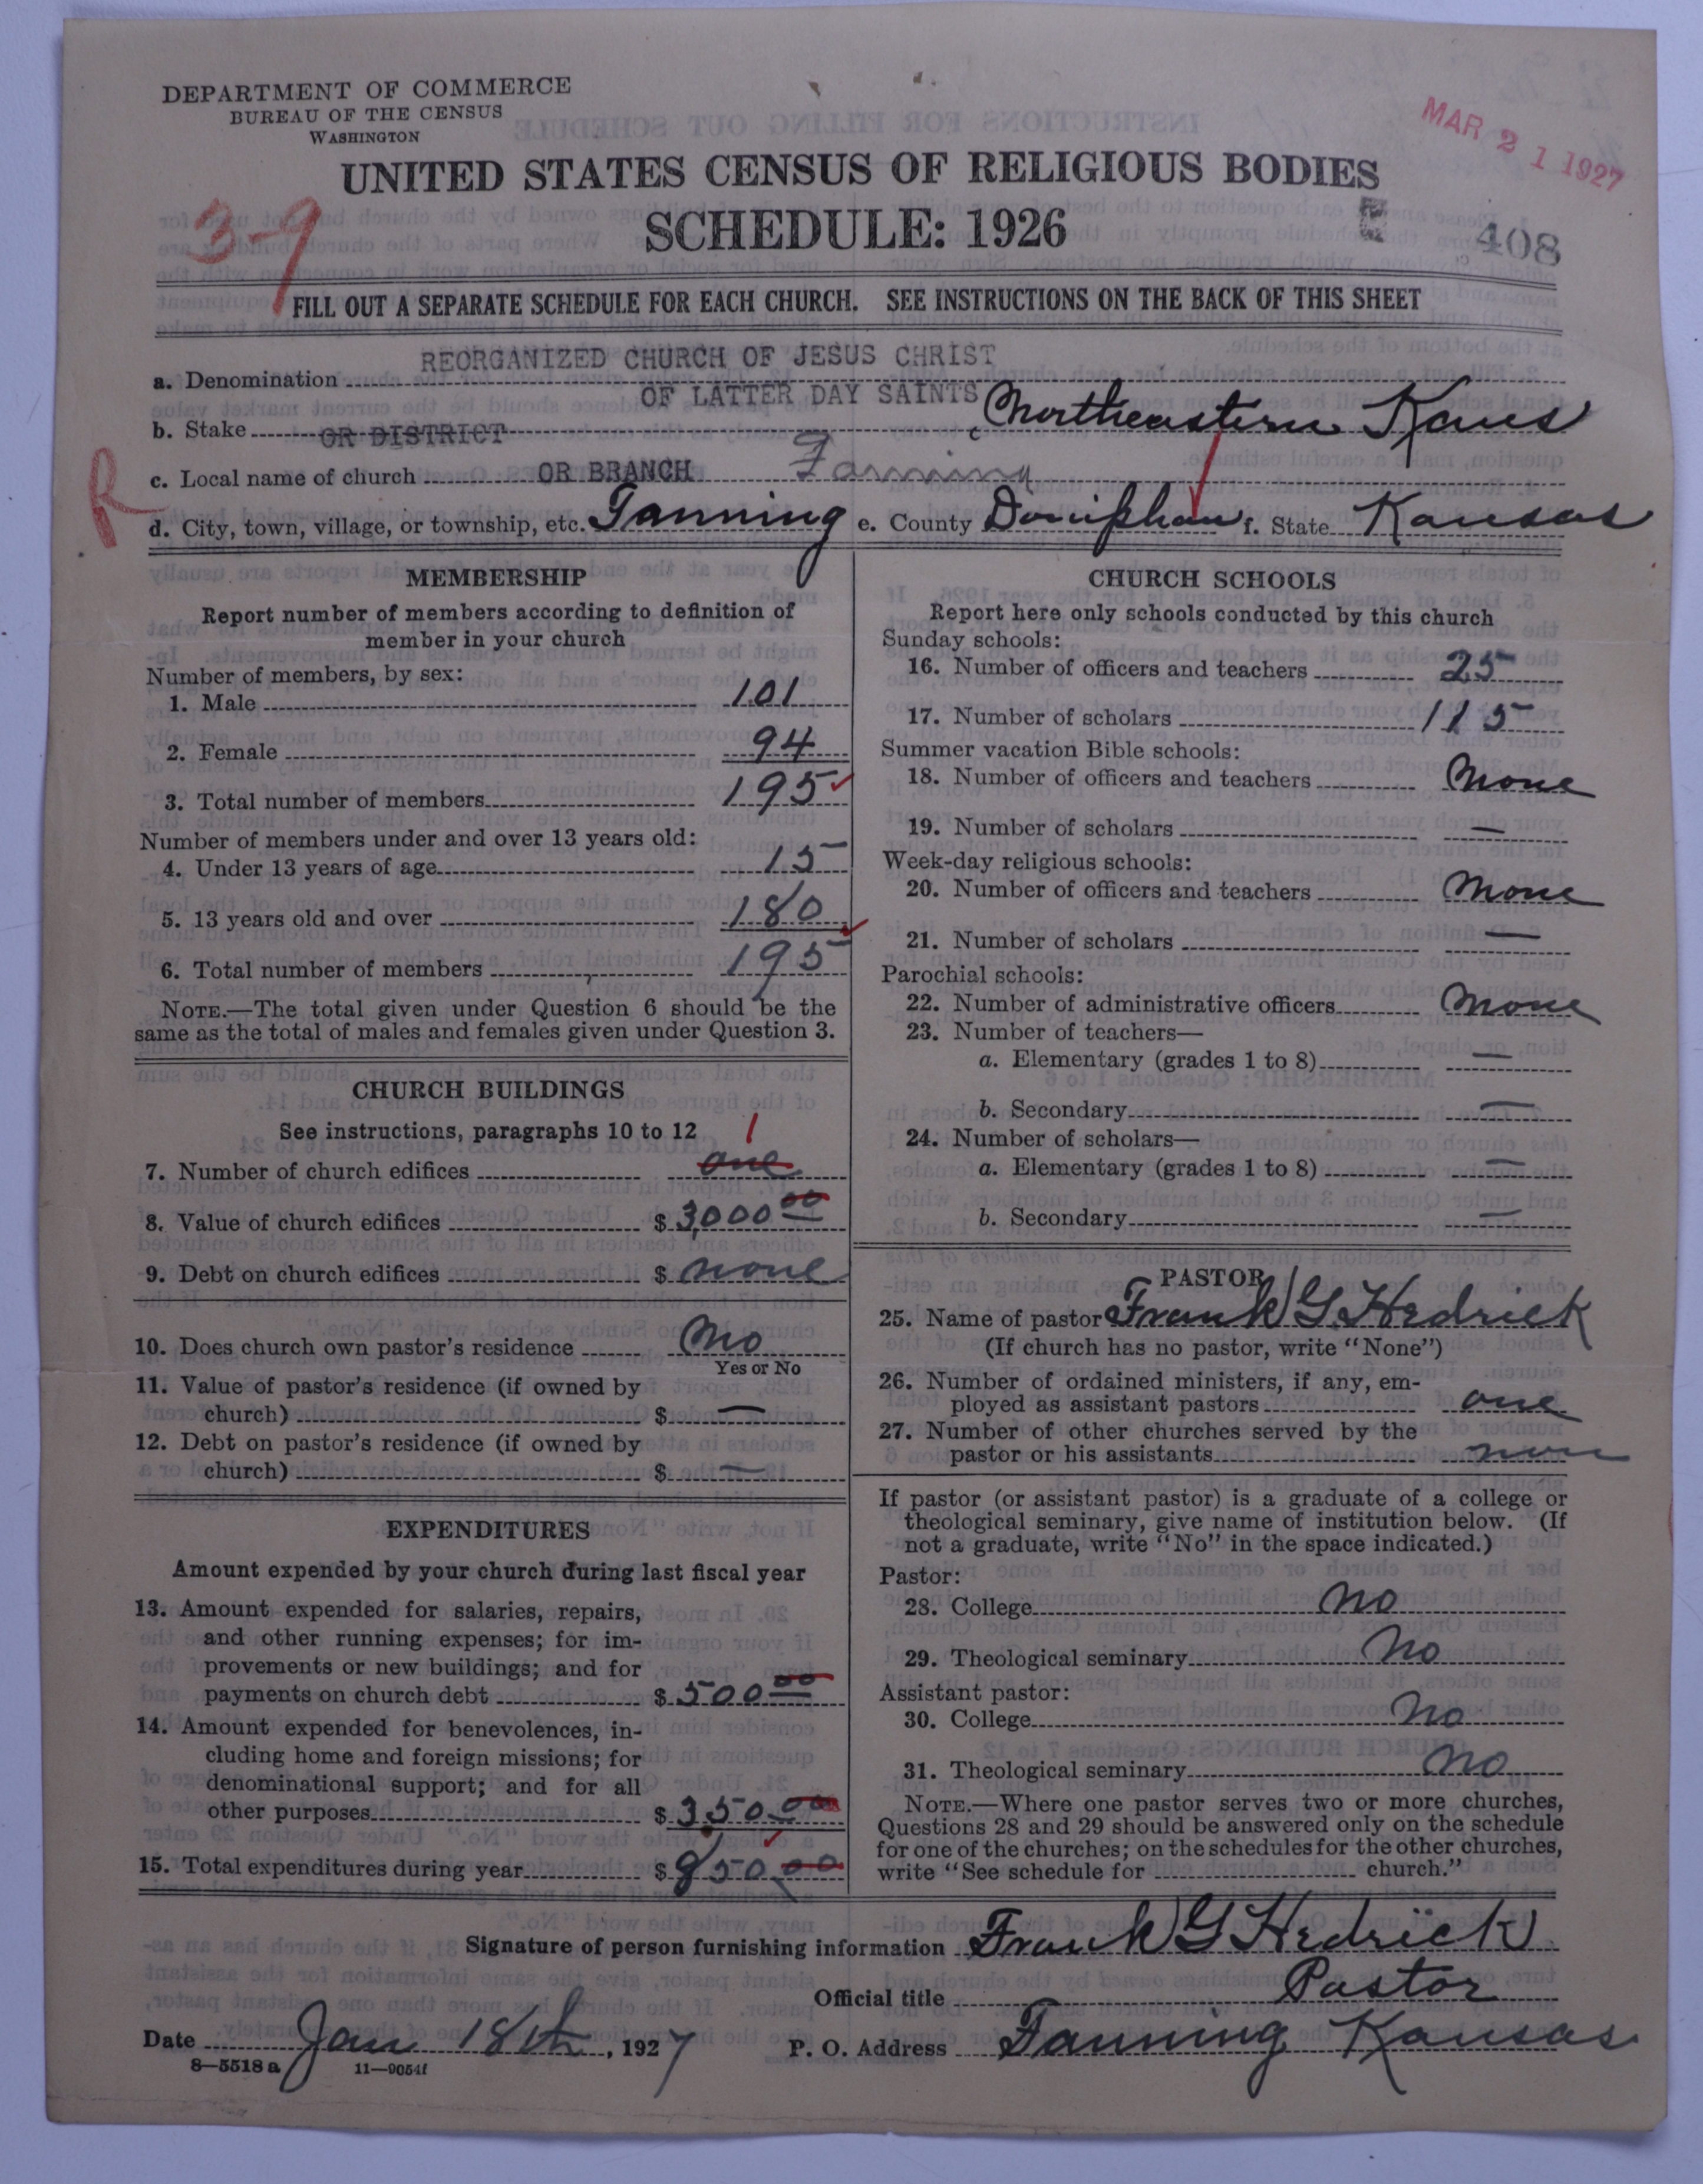 DEPARTMENT OF COMMERCE
BUREAU OF THE CENSUS
WASHINGTON
MAR 21 1927
UNITED STATES CENSUS OF RELIGIOUS BODIES
SCHEDULE: 1926
3-9
408
FILL OUT A SEPARATE SCHEDULE FOR EACH CHURCH. SEE INSTRUCTIONS ON THE BACK OF THIS SHEET
REORGANIZED CHURCH OF JESUS CHRIST
a. Denomination
OF LATTER DAY SAINTS
b. Stake OR DISTRICT Northeastern Kans
R
c. Local name of church OR BRANCH Fanning
d. City, town, village, or township, etc. Fanning e. County Doniphan f. State Kansas
MEMBERSHIP
Report number of members according to definition of
member in your church
Number of members, by sex:
1. Male 101
2. Female 94
3. Total number of members 195
Number of members under and over 13 years old:
4. Under 13 years of age 15
5. 13 years old and over 180
6. Total number of members 195
NOTE.—The total given under Question 6 should be the
same as the total of males and females given under Question 3.
CHURCH BUILDINGS
See instructions, paragraphs 10 to 12
1
7. Number of church edifices one
8. Value of church edifices $ 3,000 00
9. Debt on church edifices $ none
10. Does church own pastor's residence No
Yes or No
11. Value of pastor's residence (if owned by
church) $ —
12. Debt on pastor's residence (if owned by
church) $ —
EXPENDITURES
Amount expended by your church during last fiscal year
13. Amount expended for salaries, repairs,
and other running expenses; for im-
provements or new buildings; and for
payments on church debt $ 500 00
14. Amount expended for benevolences, in-
cluding home and foreign missions; for
denominational support; and for all
other purposes $ 350.00
15. Total expenditures during year $ 850.00
CHURCH SCHOOLS
Report here only schools conducted by this church
Sunday schools:
16. Number of officers and teachers 25
17. Number of scholars 115
Summer vacation Bible schools:
18. Number of officers and teachers None
19. Number of scholars —
Week-day religious schools:
20. Number of officers and teachers None
21. Number of scholars —
Parochial schools:
22. Number of administrative officers None
23. Number of teachers—
a. Elementary (grades 1 to 8) —
b. Secondary —
24. Number of scholars—
a. Elementary (grades 1 to 8) —
b. Secondary —
PASTOR
25. Name of pastor Frank G. Hedrick
(If church has no pastor, write "None")
26. Number of ordained ministers, if any, em-
ployed as assistant pastors one
27. Number of other churches served by the
pastor or his assistants none
If pastor (or assistant pastor) is a graduate of a college or
theological seminary, give name of institution below. (If
not a graduate, write "No" in the space indicated.)
Pastor:
28. College No
29. Theological seminary No
Assistant pastor:
30. College No
31. Theological seminary No
NOTE.—Where one pastor serves two or more churches,
Questions 28 and 29 should be answered only on the schedule
for one of the churches; on the schedules for the other churches,
write "See schedule for church."
Signature of person furnishing information Frank G Hedrick
Official title Pastor
Date Jan 18th, 1927 P. O. Address Fanning Kansas
8—5518a 11—9054f